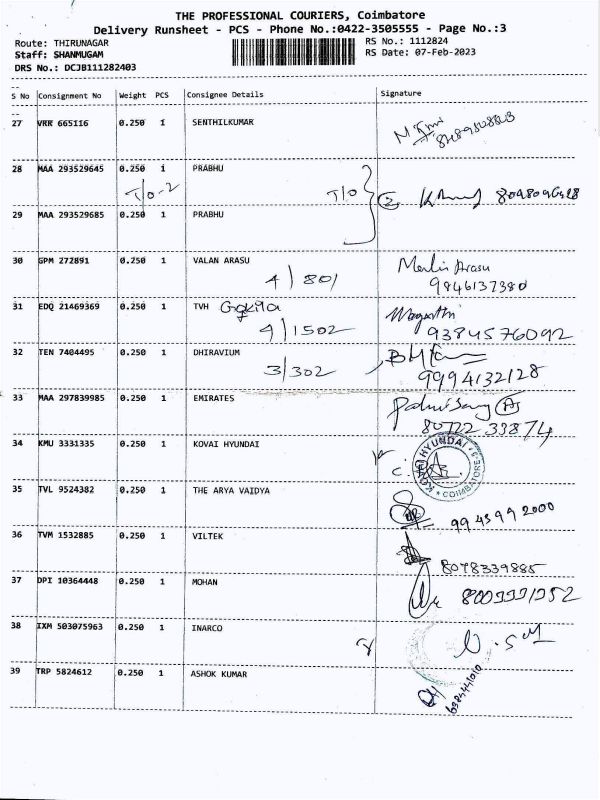 THE PROFESSIONAL COURIERS, Coimbatore
Delivery Runsheet - PCS - Phone No.:0422-3505555 - Page No.:3
Route: THIRUNAGAR
RS No.: 1112824
Staff: SHANMUGAM
RS Date: 07-Feb-2023
DRS No.: DCJB111282403
S No Consignment No Weight PCS Consignee Details Signature
27 VRR 665116 0.250 1 SENTHILKUMAR
28 MAA 293529645 0.250 1 PRABHU
T/O-2 T/O
29 MAA 293529685 0.250 1 PRABHU
30 GPM 272891 0.250 1 VALAN ARASU
4/801 Merlin Arasu
9846137380
31 EDQ 21469369 0.250 1 TVH Gokila
4/1502 9384576092
32 TEN 7404495 0.250 1 DHIRAVIUM
3/302 9994132128
33 MAA 297839985 0.250 1 EMIRATES
80722 33874
34 KMU 3331335 0.250 1 KOVAI HYUNDAI
KOVAI HYUNDAI COIMBATORE
35 TVL 9524382 0.250 1 THE ARYA VAIDYA
9943992000
36 TVM 1532885 0.250 1 VILTEK
8078339885
37 DPI 10364448 0.250 1 MOHAN
38 IXM 503075963 0.250 1 INARCO
39 TRP 5824612 0.250 1 ASHOK KUMAR